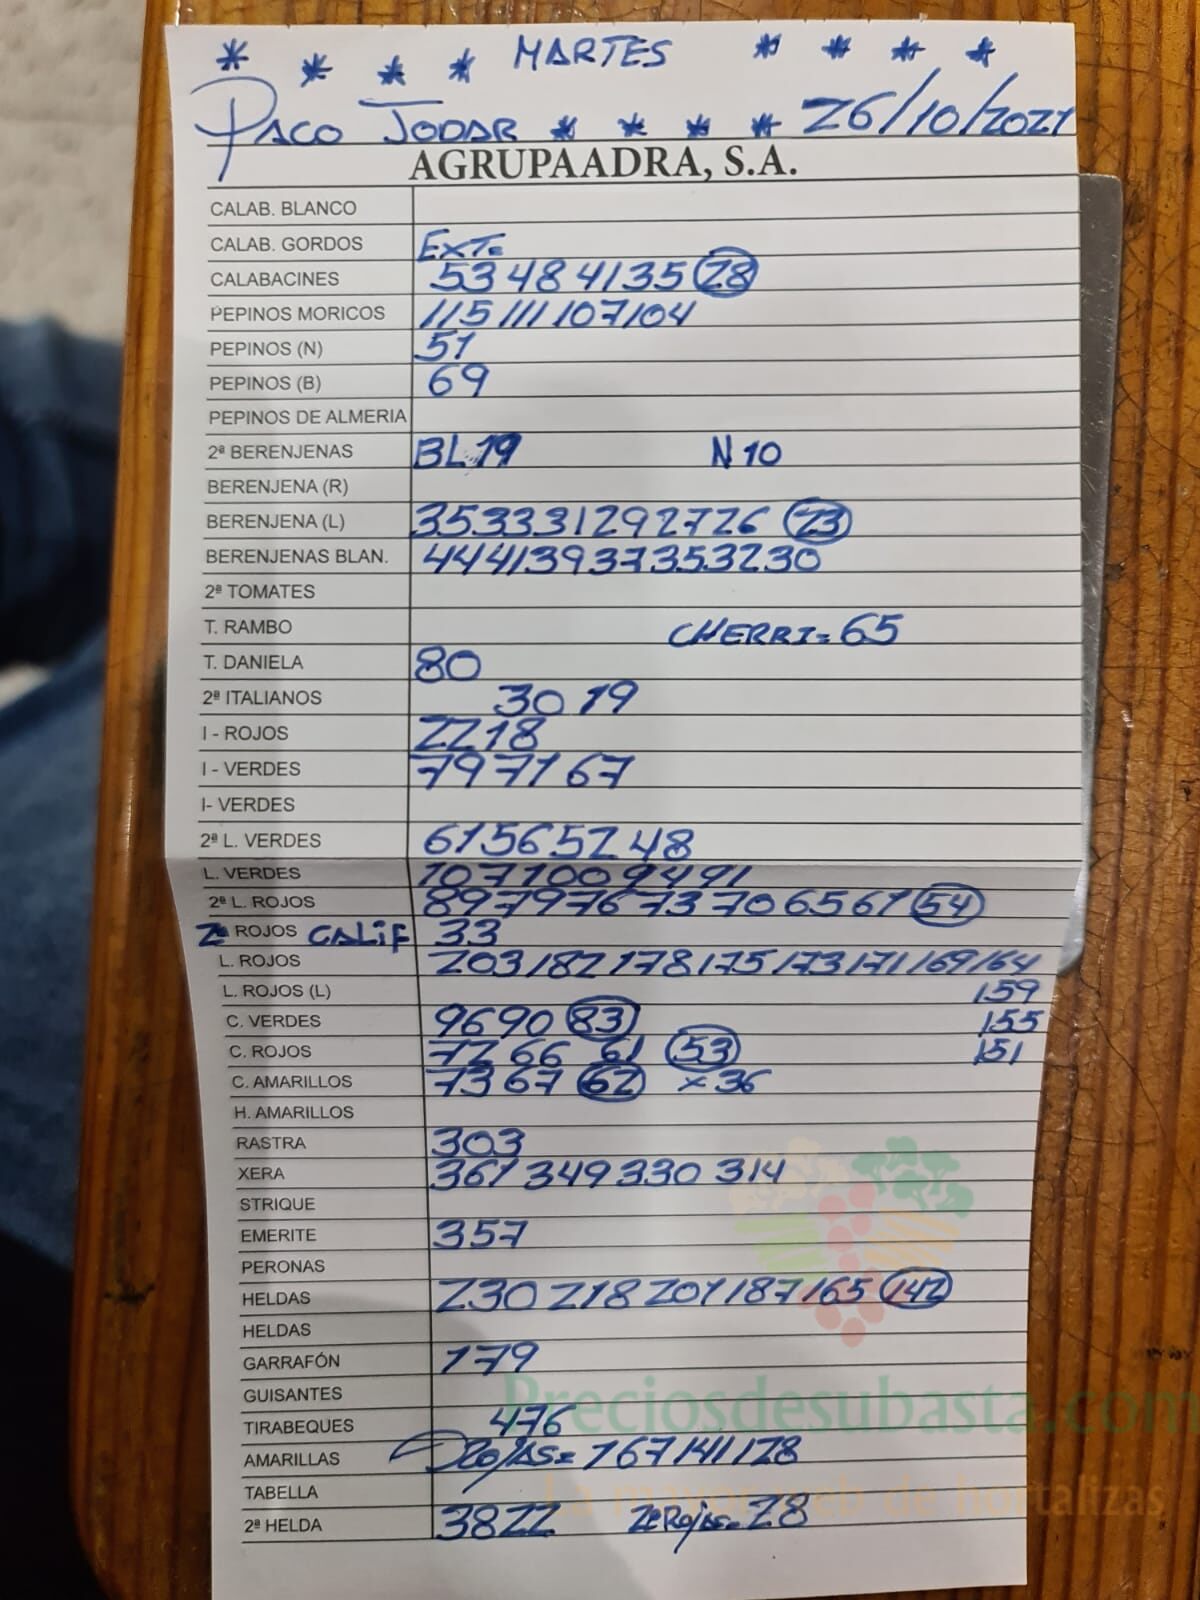 * * * * MARTES * * * *
PACO JODAR * * * * 26/10/2021
AGRUPAADRA, S.A.
CALAB. BLANCO
CALAB. GORDOS EXT=
CALABACINES 53 48 41 35 28
PEPINOS MORICOS 115 111 107 104
PEPINOS (N) 51
PEPINOS (B) 69
PEPINOS DE ALMERIA
2ª BERENJENAS BL 19 N 10
BERENJENA (R)
BERENJENA (L) 35 33 31 29 27 26 23
BERENJENAS BLAN. 44 41 39 37 35 32 30
2ª TOMATES
T. RAMBO CHERRI= 65
T. DANIELA 80
2ª ITALIANOS 30 19
I - ROJOS 22 18
I - VERDES 79 71 67
I- VERDES
2ª L. VERDES 61 56 52 48
L. VERDES 107 100 94 91
2ª L. ROJOS 89 79 76 73 70 65 61 54
2ª ROJOS CALIF 33
L. ROJOS 203 182 178 175 173 171 169 164
L. ROJOS (L) 159
C. VERDES 96 90 83 155
C. ROJOS 72 66 61 53 151
C. AMARILLOS 73 67 62 x 36
H. AMARILLOS
RASTRA 303
XERA 361 349 330 314
STRIQUE
EMERITE 357
PERONAS
HELDAS 230 218 201 187 165 142
HELDAS
GARRAFÓN 179
GUISANTES
Preciosdesubasta.com
TIRABEQUES 476
AMARILLAS ROJAS= 167 141 128
TABELLA
La mayor web de hortalizas
2ª HELDA 38 22 2ª ROJAS= 28